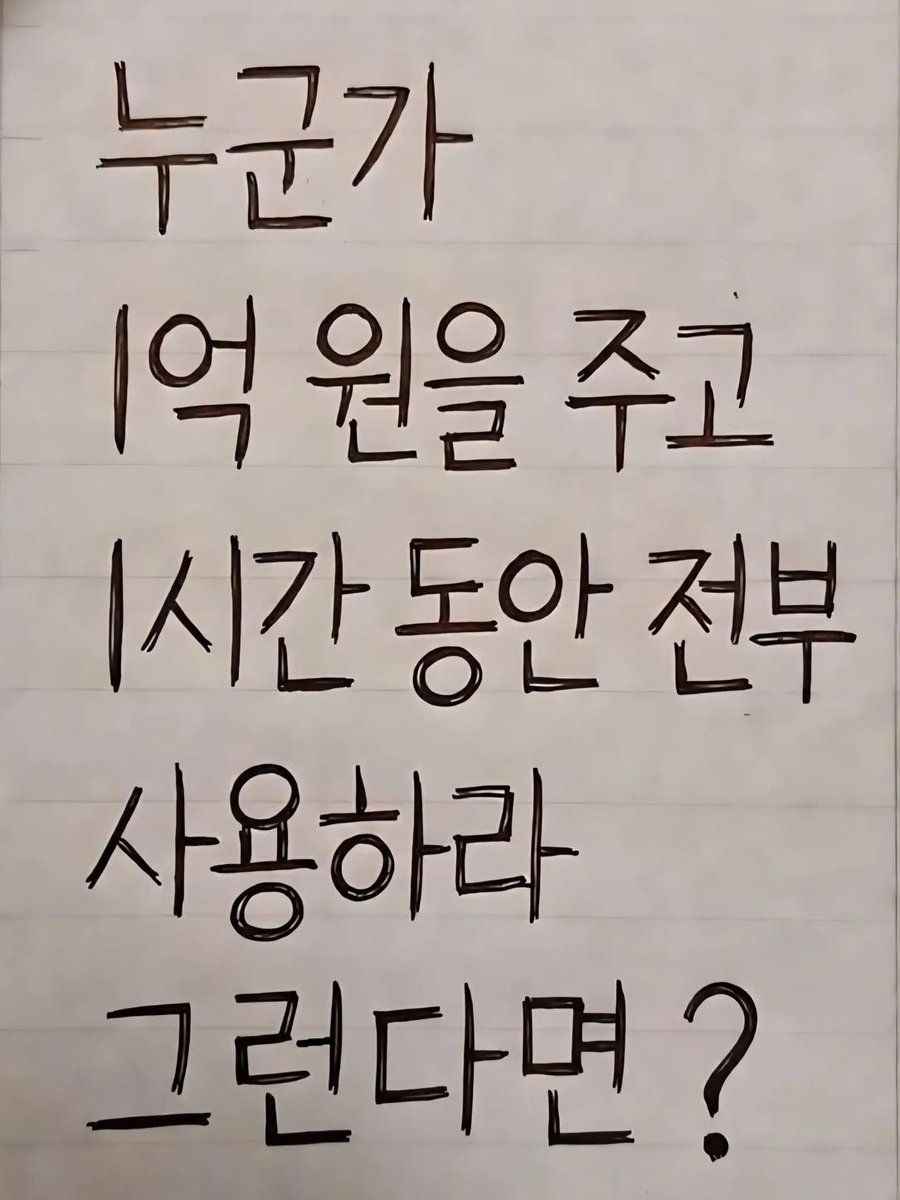 누군가
1억 원을 주고
1시간 동안 전부
사용하라
그런다면?